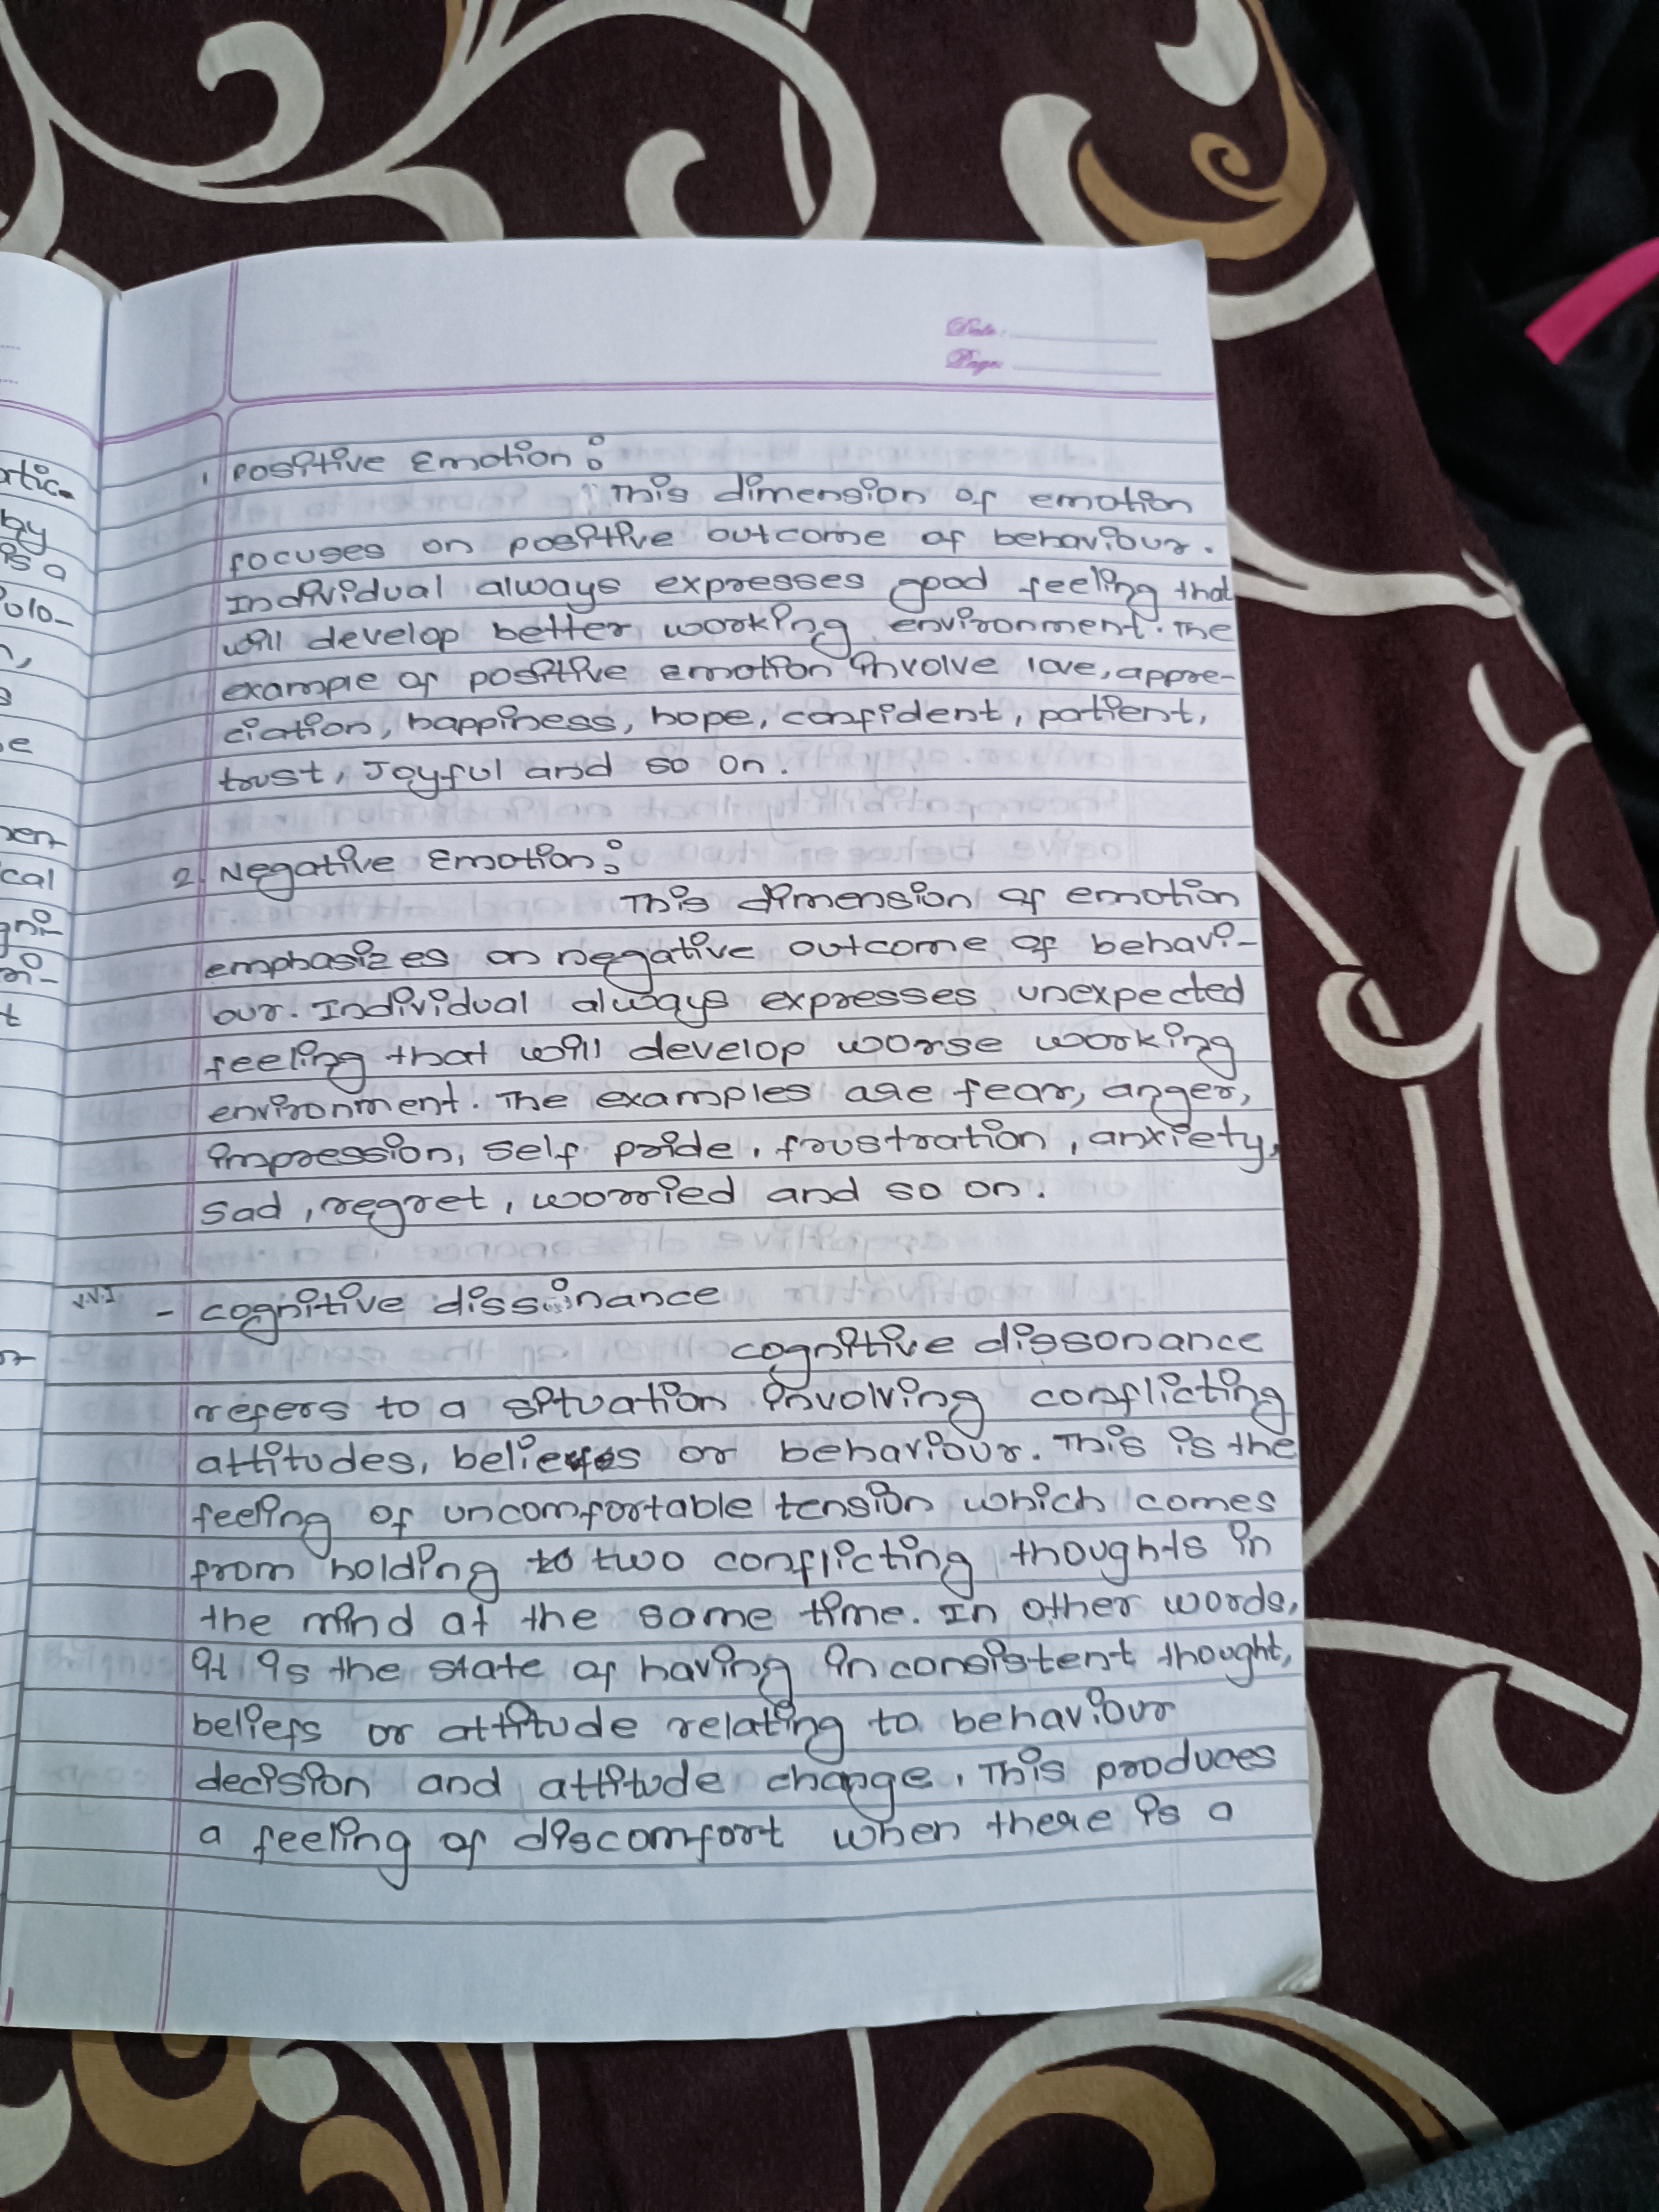 Date:
Page:
1 Positive Emotion:
This dimension of emotion
focuses on positive outcome of behaviour.
Individual always expresses good feeling that
will develop better working environment. The
example of positive emotion involve love, appre-
ciation, happiness, hope, confident, patient,
trust, Joyful and so on.
2. Negative Emotion:
This dimension of emotion
emphasizes on negative outcome of behavi-
our. Individual always expresses unexpected
feeling that will develop worse working
environment. The examples are fear, anger,
impression, self pride, frustration, anxiety,
sad, regret, worried and so on.
V.V.I - cognitive dissonance
cognitive dissonance
refers to a situation involving conflicting
attitudes, believes or behaviour. This is the
feeling of uncomfortable tension which comes
from holding to two conflicting thoughts in
the mind at the same time. In other words,
it is the state of having inconsistent thought,
beliefs or attitude relating to behaviour
decision and attitude change. This produces
a feeling of discomfort when there is a